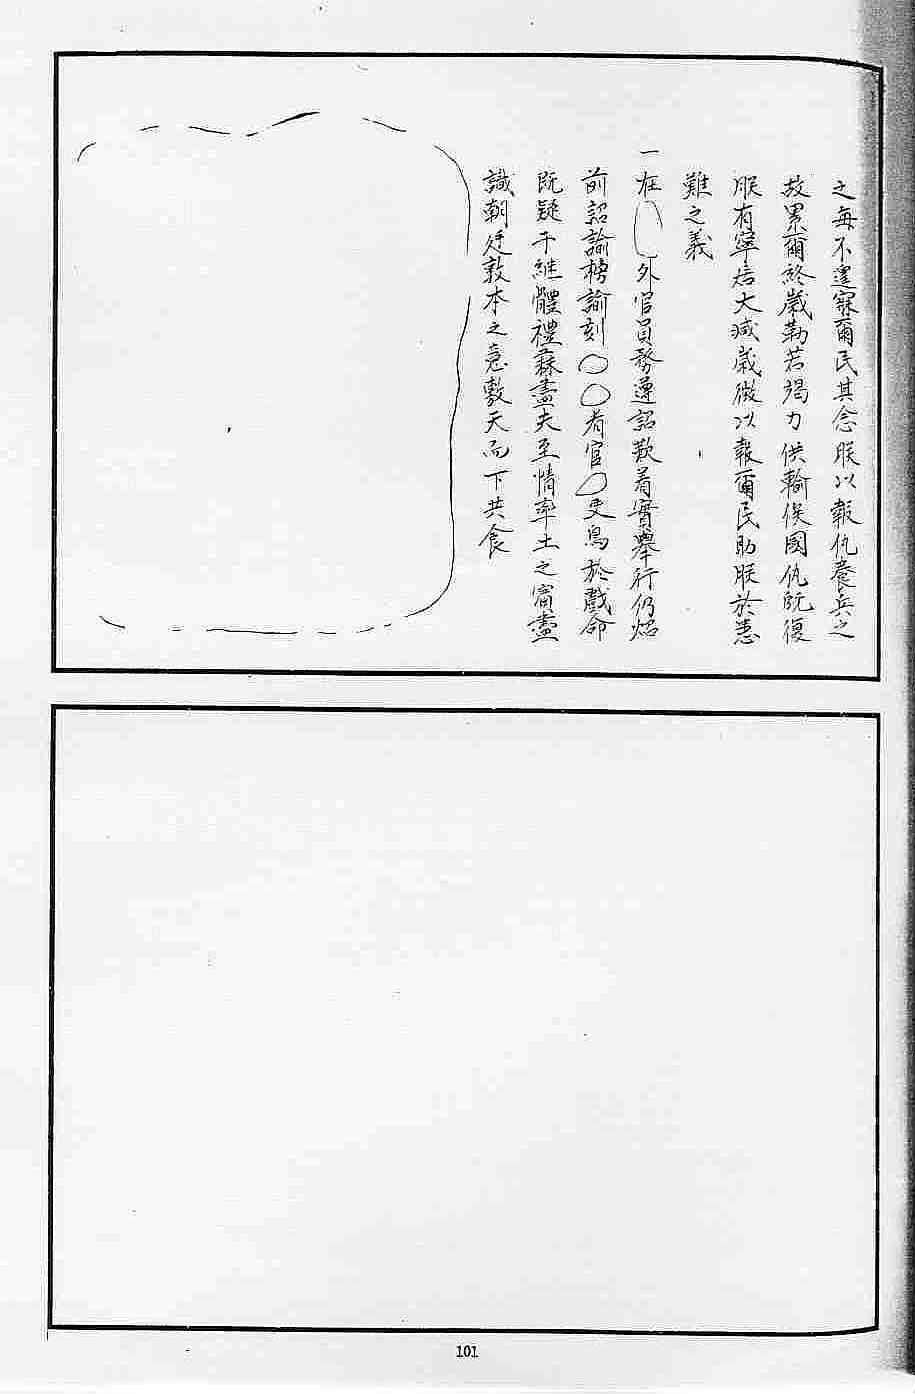 之每不遑寐爾民其念朕以報仇養兵之
故累爾終歲勤苦竭力供輸俟國仇既復
朕有寧居大減歲徵以報爾民助朕於患
難之義
一在 外官員務遵詔款着實舉行仍炤
前詔諭榜諭刻〇〇者官〇吏烏於戲命
既疑于繼體禮蘇盡夫至情率土之賓盡
識朝廷敦本之意敷天而下共食
101